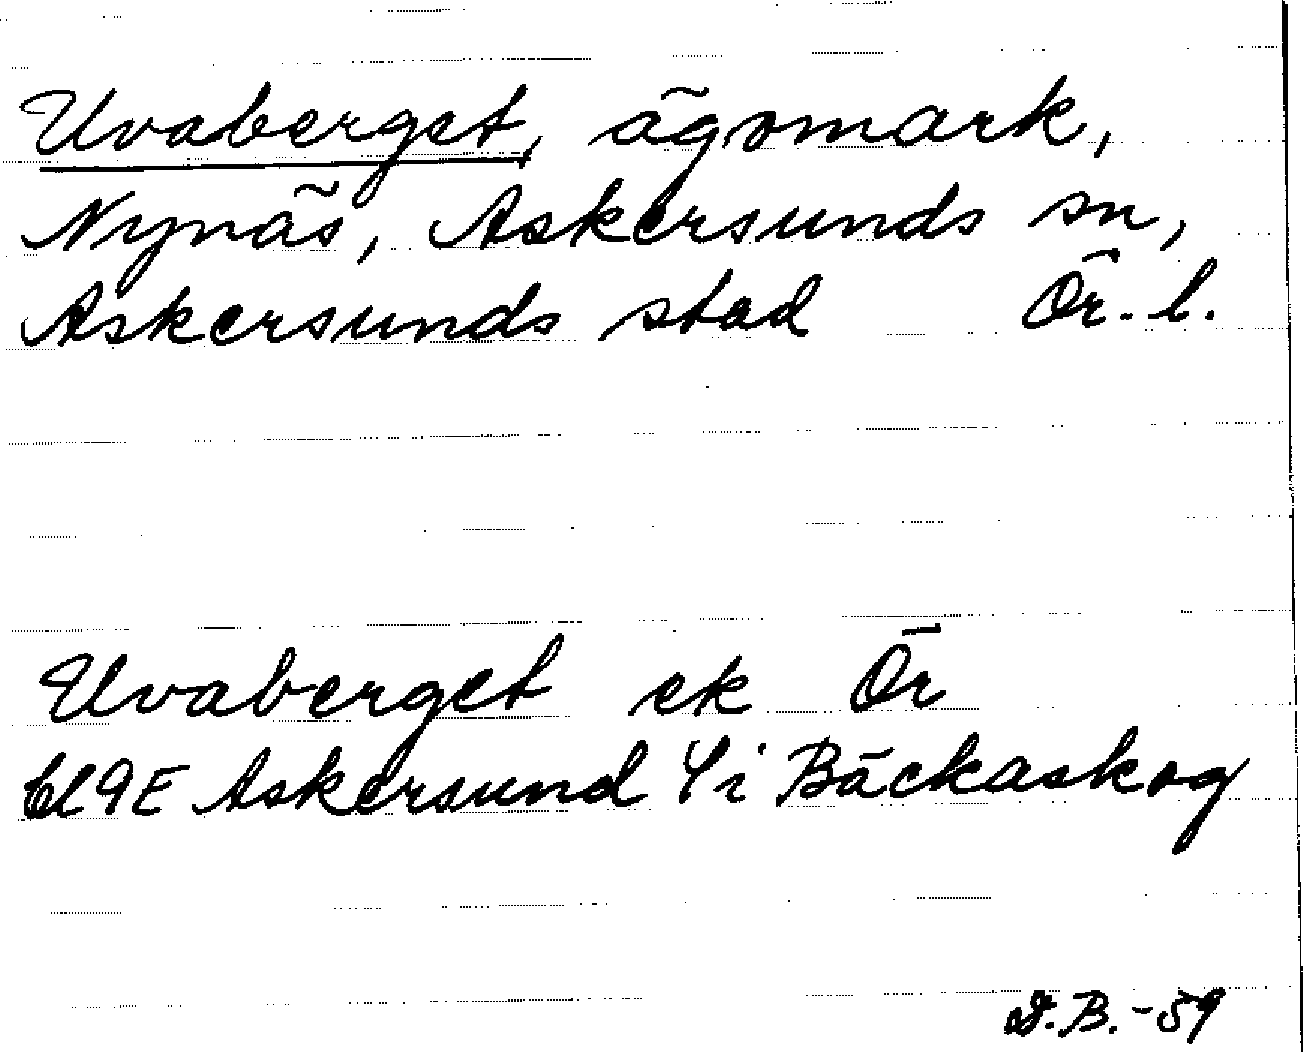 Uvaberget, ägomark,
Nynäs, Askersunds sn,
Askersunds stad Ör. l.
Uvaberget ek Ör
9E Askersund i Bäckaskog
B. -59